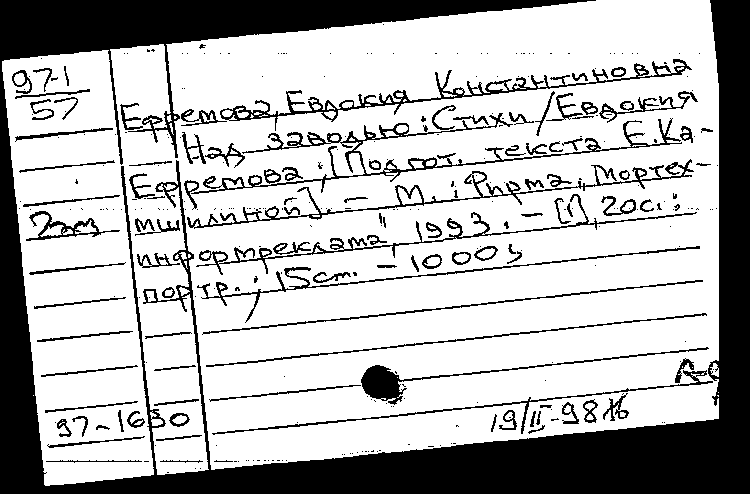 97-1
57
Ефремова, Евдокия Константиновна
Над заводью: Стихи / Евдокия
Ефремова; [Подгот. текста Е.Ка-
2экз
мшилиной]. - М.: Фирма "Мортех-
информреклама", 1993. - [1], 20с.:
портр.; 15см. - 1000э
97-1630
19/II-98